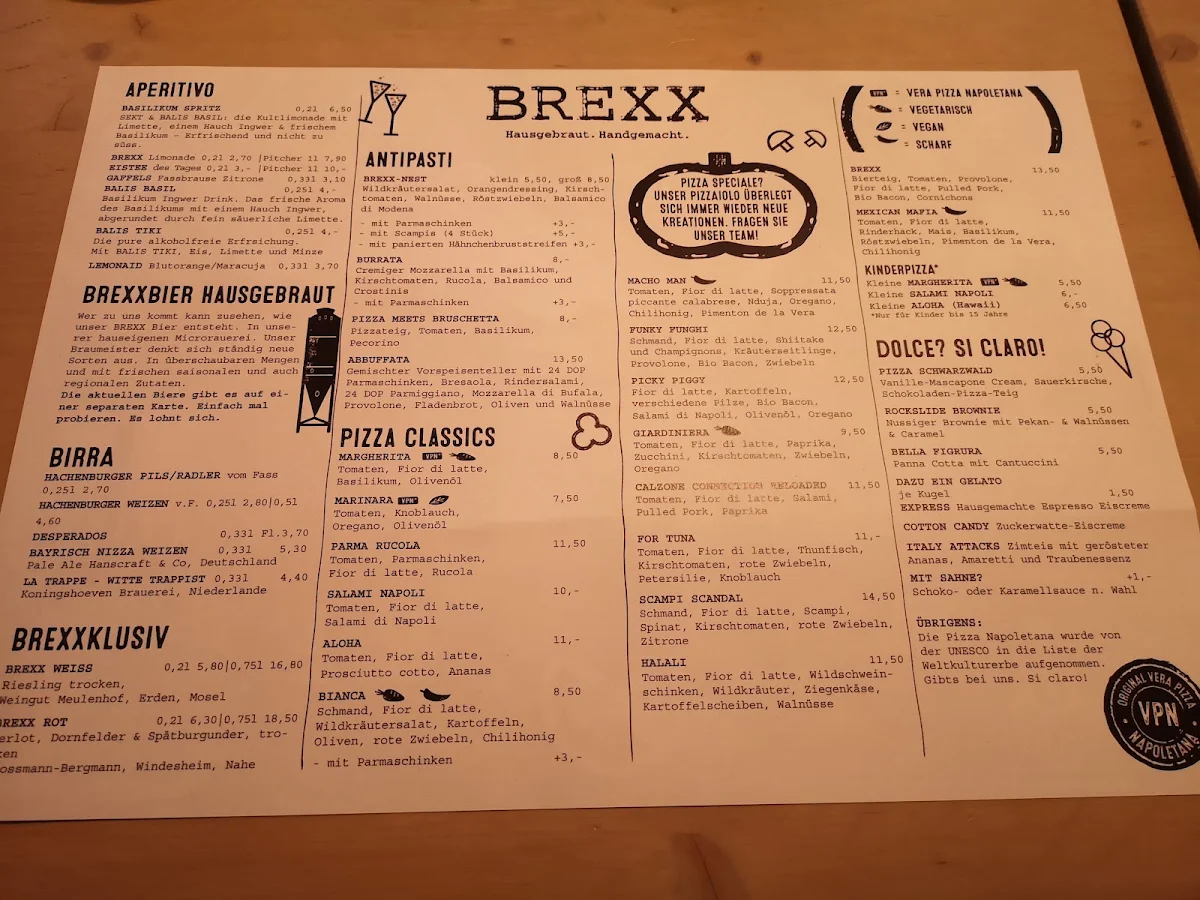 APERITIVO
BASILIKUM SPRITZ 0,2l 6,50
SEKT & BALIS BASIL: die Kultlimonade mit
Limette, einem Hauch Ingwer & frischem
Basilikum – Erfrischend und nicht zu
süss.
BREXX Limonade 0,2l 2,70 |Pitcher 1l 7,90
EISTEE des Tages 0,2l 3,- |Pitcher 1l 10,-
GAFFELS Fassbrause Zitrone 0,33l 3,10
BALIS BASIL 0,25l 4,-
Basilikum Ingwer Drink. Das frische Aroma
des Basilikums mit einem Hauch Ingwer,
abgerundet durch fein säuerliche Limette.
BALIS TIKI 0,25l 4,-
Die pure alkoholfreie Erfrsichung.
Mit BALIS TIKI, Eis, Limette und Minze
LEMONAID Blutorange/Maracuja 0,33l 3,70
BREXXBIER HAUSGEBRAUT
Wer zu uns kommt kann zusehen, wie
unser BREXX Bier entsteht. In unse-
rer hauseigenen Microrauerei. Unser
Braumeister denkt sich ständig neue
Sorten aus. In überschaubaren Mengen
und mit frischen saisonalen und auch
regionalen Zutaten.
Die aktuellen Biere gibt es auf ei-
ner separaten Karte. Einfach mal
probieren. Es lohnt sich.
BIRRA
HACHENBURGER PILS/RADLER vom Fass
0,25l 2,70
HACHENBURGER WEIZEN v.F. 0,25l 2,80|0,5l
4,60
DESPERADOS 0,33l Fl.3,70
BAYRISCH NIZZA WEIZEN 0,33l 5,30
Pale Ale Hanscraft & Co, Deutschland
LA TRAPPE - WITTE TRAPPIST 0,33l 4,40
Koningshoeven Brauerei, Niederlande
BREXXKLUSIV
BREXX WEISS 0,2l 5,80|0,75l 16,80
Riesling trocken,
Weingut Meulenhof, Erden, Mosel
BREXX ROT 0,2l 6,30|0,75l 18,50
erlot, Dornfelder & Spätburgunder, tro-
ken
ossmann-Bergmann, Windesheim, Nahe
BREXX
Hausgebraut. Handgemacht.
ANTIPASTI
BREXX-NEST klein 5,50, groß 8,50
Wildkräutersalat, Orangendressing, Kirsch-
tomaten, Walnüsse, Röstzwiebeln, Balsamico
di Modena
- mit Parmaschinken +3,-
- mit Scampis (4 Stück) +5,-
- mit panierten Hähnchenbruststreifen +3,-
BURRATA 8,-
Cremiger Mozzarella mit Basilikum,
Kirschtomaten, Rucola, Balsamico und
Crostinis
- mit Parmaschinken +3,-
PIZZA MEETS BRUSCHETTA 8,-
Pizzateig, Tomaten, Basilikum,
Pecorino
ABBUFFATA 13,50
Gemischter Vorspeisenteller mit 24 DOP
Parmaschinken, Bresaola, Rindersalami,
24 DOP Parmiggiano, Mozzarella di Bufala,
Provolone, Fladenbrot, Oliven und Walnüsse
PIZZA CLASSICS
MARGHERITA VPN 8,50
Tomaten, Fior di latte,
Basilikum, Olivenöl
MARINARA VPN 7,50
Tomaten, Knoblauch,
Oregano, Olivenöl
PARMA RUCOLA 11,50
Tomaten, Parmaschinken,
Fior di latte, Rucola
SALAMI NAPOLI 10,-
Tomaten, Fior di latte,
Salami di Napoli
ALOHA 11,-
Tomaten, Fior di latte,
Prosciutto cotto, Ananas
BIANCA 8,50
Schmand, Fior di latte,
Wildkräutersalat, Kartoffeln,
Oliven, rote Zwiebeln, Chilihonig
- mit Parmaschinken +3,-
PIZZA SPECIALE?
UNSER PIZZAIOLO ÜBERLEGT
SICH IMMER WIEDER NEUE
KREATIONEN. FRAGEN SIE
UNSER TEAM!
MACHO MAN 11,50
Tomaten, Fior di latte, Soppressata
piccante calabrese, Nduja, Oregano,
Chilihonig, Pimenton de la Vera
FUNKY FUNGHI 12,50
Schmand, Fior di latte, Shiitake
und Champignons, Kräuterseitlinge,
Provolone, Bio Bacon, Zwiebeln
PICKY PIGGY 12,50
Fior di latte, Kartoffeln,
verschiedene Pilze, Bio Bacon,
Salami di Napoli, Olivenöl, Oregano
GIARDINIERA 9,50
Tomaten, Fior di latte, Paprika,
Zucchini, Kirschtomaten, Zwiebeln,
Oregano
CALZONE CONNECTION RELOADED 11,50
Tomaten, Fior di latte, Salami,
Pulled Pork, Paprika
FOR TUNA 11,-
Tomaten, Fior di latte, Thunfisch,
Kirschtomaten, rote Zwiebeln,
Petersilie, Knoblauch
SCAMPI SCANDAL 14,50
Schmand, Fior di latte, Scampi,
Spinat, Kirschtomaten, rote Zwiebeln,
Zitrone
HALALI 11,50
Tomaten, Fior di latte, Wildschwein-
schinken, Wildkräuter, Ziegenkäse,
Kartoffelscheiben, Walnüsse
VPN = VERA PIZZA NAPOLETANA
= VEGETARISCH
= VEGAN
= SCHARF
BREXX 13,50
Bierteig, Tomaten, Provolone,
Fior di latte, Pulled Pork,
Bio Bacon, Cornichons
MEXICAN MAFIA 11,50
Tomaten, Fior di latte,
Rinderhack, Mais, Basilikum,
Röstzwiebeln, Pimenton de la Vera,
Chilihonig
KINDERPIZZA*
Kleine MARGHERITA VPN 5,50
Kleine SALAMI NAPOLI 6,-
Kleine ALOHA (Hawaii) 6,50
*Nur für Kinder bis 15 Jahre
DOLCE? SI CLARO!
PIZZA SCHWARZWALD 5,50
Vanille-Mascapone Cream, Sauerkirsche,
Schokoladen-Pizza-Teig
ROCKSLIDE BROWNIE 5,50
Nussiger Brownie mit Pekan- & Walnüssen
& Caramel
BELLA FIGRURA 5,50
Panna Cotta mit Cantuccini
DAZU EIN GELATO
je Kugel 1,50
EXPRESS Hausgemachte Espresso Eiscreme
COTTON CANDY Zuckerwatte-Eiscreme
ITALY ATTACKS Zimteis mit gerösteter
Ananas, Amaretti und Traubenessenz
MIT SAHNE? +1,-
Schoko- oder Karamellsauce n. Wahl
ÜBRIGENS:
Die Pizza Napoletana wurde von
der UNESCO in die Liste der
Weltkulturerbe aufgenommen.
Gibts bei uns. Si claro!
ORIGINAL VERA PIZZA
VPN
NAPOLETANA